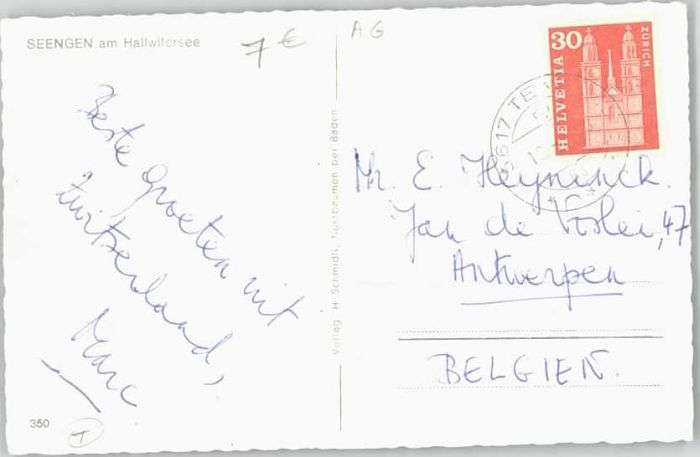 SEENGEN am Hallwilersee
7 €
AG
Beste Groeten uit
Zwitserland,
Marc
350
T
Verlag H. Schmidli, bei Baden
30
HELVETIA
ZÜRICH
5617 TE
Mr. E. Heyninck.
Jan de Voslei, 47
Antwerpen
BELGIEN.